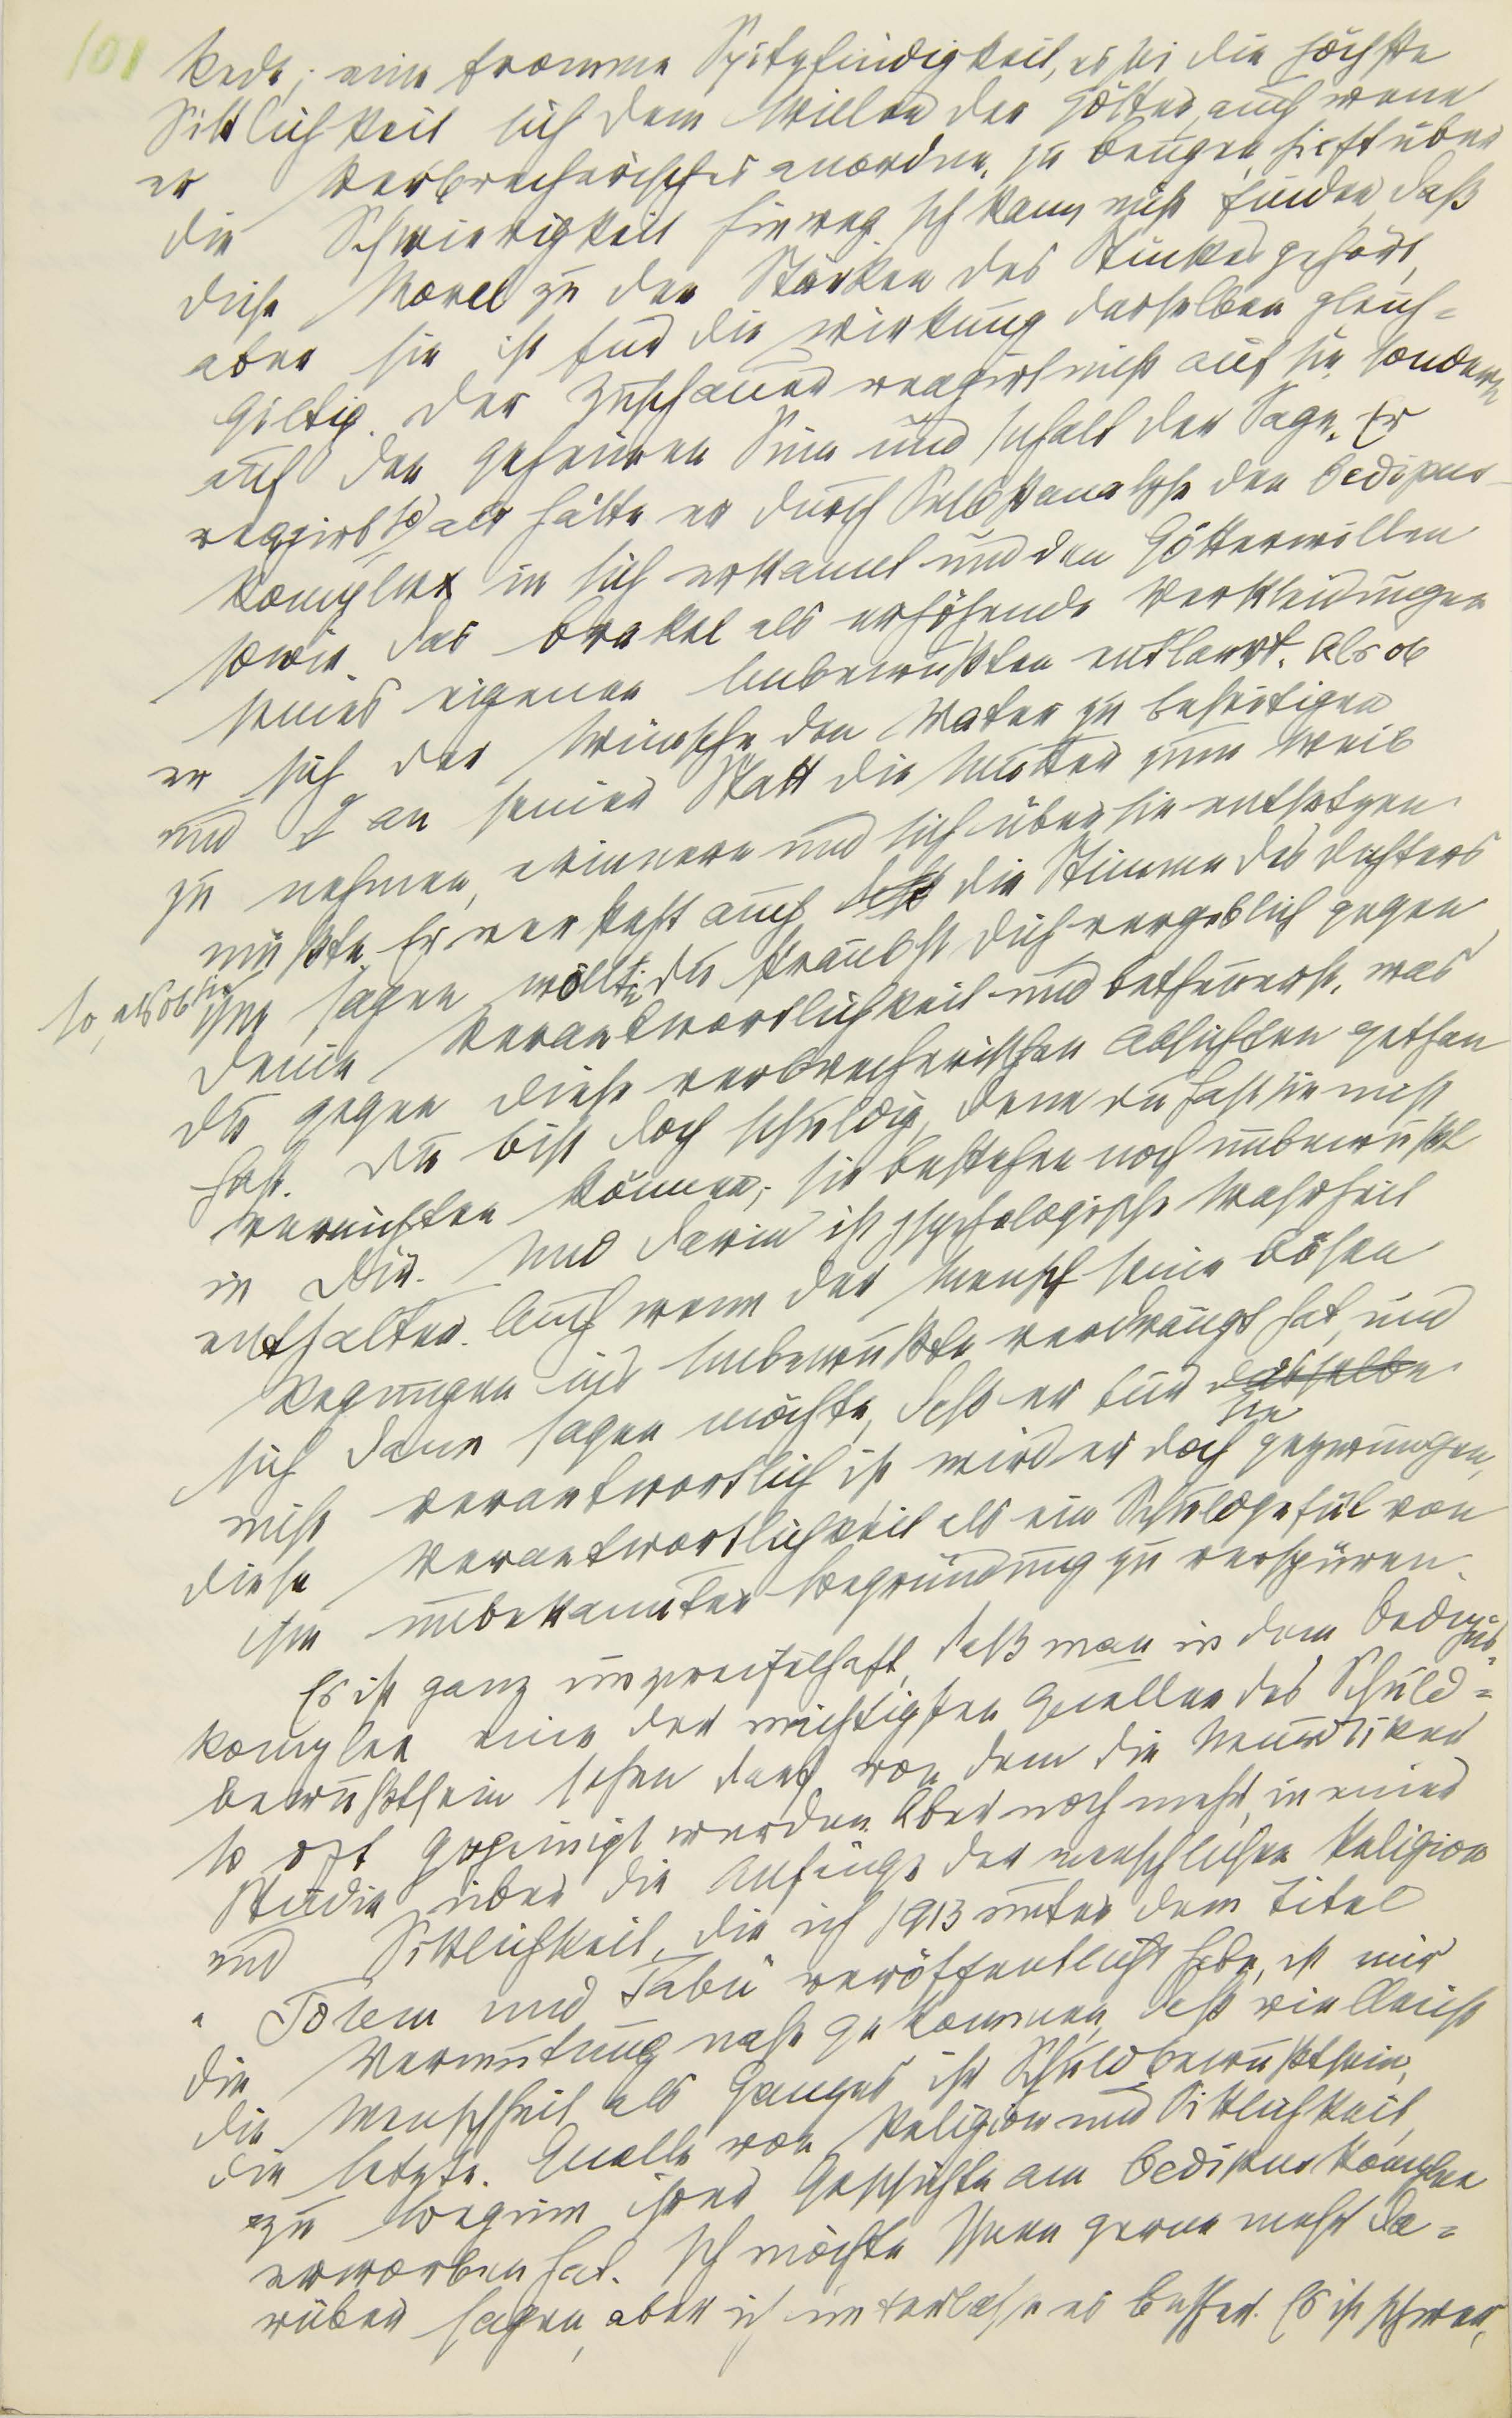 101
Rede; eine fromme Spitzfindigkeit, es sei die höchste
Sittlichkeit sich dem Willen der Götter, auch wenn
er Verbrecherisches anordne, zu beugen, hilft über
die Schwierigkeit hinweg. Ich kann nicht finden, daß
diese Moral zu den Stärken des Stückes gehört,
aber sie ist für die Wirkung desselben gleich=
giltig. Der Zuschauer reagirt nicht auf sie, sondern
auf den geheimen Sinn und Inhalt der Sage. Er
reagirt so als hätte er durch Selbstanalyse den Oedipus-
komplex in sich erkannt und den Götterwillen
sowie das Orakel als erhöhende Verkleidungen
seines eigenen Unbewußten entlarvt. Als ob
er sich der Wünsche den Vater zu beseitigen
und an seiner Statt die Mutter zum Weib
zu nehmen, erinnern und sich über sie entsetzen
müßte. Er versteht auch die Stimme des Dichters
so, als ob sie ihm sagen wollte: Du sträubst dich vergeblich gegen
deine Verantwortlichkeit und beteuerst, was
du gegen diese verbrecherischen Absichten gethan
hast. Du bist doch schuldig, denn du hast sie nicht
vernichten können; sie bestehen noch unbewußt
in Dir. Und darin ist psychologische Wahrheit
enthalten. Auch wenn der Mensch seine bösen
Regungen ins Unbewußte verdrängt hat und
sich dann sagen möchte, daß er für dasselbe sie
nicht verantwortlich ist wird er doch gezwungen,
diese Verantwortlichkeit als ein Schuldgefül von
ihm unbekannter Begründung zu verspüren.
Es ist ganz unzweifelhaft, daß man in dem Oedipus-
komplex eine der wichtigsten Quellen des Schuld=
bewußtsein sehen darf, von dem die Neurotiker
so oft gepeinigt werden. Aber noch mehr, in einer
Studie über die Anfänge der menschlichen Religion
und Sittlichkeit, die ich 1913 unter dem Titel
"Totem und Tabu" veröffentlicht habe, ist mir
die Vermutung nahe gekommen, daß vielleicht
die Menschheit als Ganzes ihr Schuldbewußtsein,
die letzte Quelle von Religion und Sittlichkeit,
zu Beginn ihrer Geschichte am Oedipuskomplex
erworben hat. Ich möchte Ihnen gerne mehr da=
rüber sagen, aber ich unterlasse es besser. Es ist schwer,